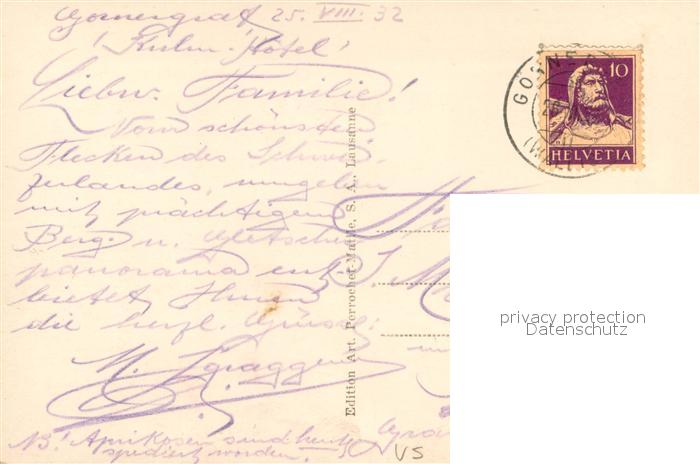 Gornergrat 25. VIII. 32
"Kulm-Hotel"
Liebw. Familie!
Vom schönsten
Flecken des Schwei-
zerlandes, umgeben
mit prächtigem
Berg- u. Gletscher
panorama ent-
bietet Ihnen
die herzl. Grüsse:
M. Zgraggen
NB! Aprikosen sind heute
spediert worden.
Edition Art. Perrochet-Matile, S. A., Lausanne
10
HELVETIA
VS
privacy protection
Datenschutz